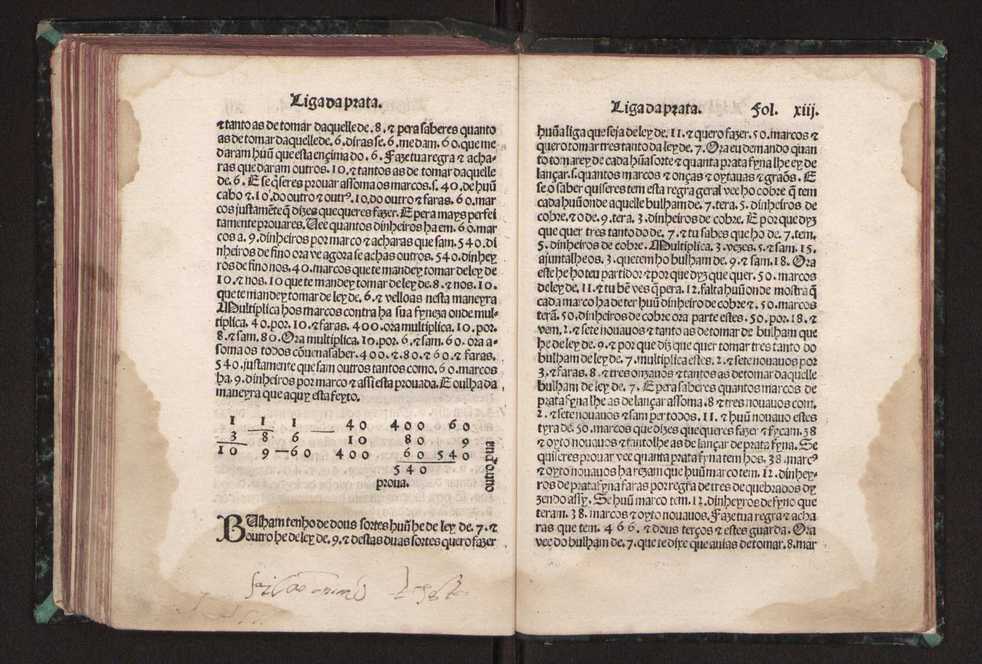 Liga da prata.
⁊ tanto as de tomar daquelle de .8. ⁊ pera saberes quanto
as de tomar daquelle de .6. diras se .6. me dam .60. que me
daram huũ que esta ençima do .6. Faze tua regra ⁊ acha-
ras que daram outros .10. ⁊ tantos as de tomar daquelle
de .6. E se q̃seres prouar assoma os marcos .s. 40. de huũ
cabo ⁊ .10. do outro ⁊ outrº .10. do outro ⁊ faras .60. mar
cos justamẽte q̃ dizes que queres fazer. E pera mays perfei
tamente prouares. Uee quantos dinheiros ha em .60. mar
cos a .9. dinheiros por marco ⁊ acharas que sam .540. di
nheiros de fino ora ve agora se achas outros .540. dinhey
ros de fino nos .40. marcos que te mandey tomar de ley de
10. ⁊ nos .10 que te mandey tomar de ley de .8. ⁊ nos .10.
que te mandey tomar de ley de .6. ⁊ velloas nesta maneyra
Multiplica hos marcos contra ha sua fyneza onde mul-
tiplica .40. por .10. ⁊ faras .400. ora multiplica .10. por.
8. ⁊ sam .80. Ora multiplica .10. por .6. ⁊ sam .60. ora a-
soma os todos cõuem a saber .400. ⁊ de .80. ⁊ 60. ⁊ faras.
540. justamente que sam outros tantos como .60. marcos
ha .9. dinheiros por marco ⁊ assi esta prouada. E oulha da
maneyra que aquy esta feyto.
1 1 1 40 400 60
3 8 6 10 80 9
10 9 60 400 60 540
540
proua.
Bulham tenho de dous sortes huũ he de ley de .7. ⁊
outro he de ley de .9. ⁊ destas duas sortes quero fazer
Liga da prata. Fol. xiij.
huũa liga que seja de ley de .11. ⁊ quero fazer .50. marcos ⁊
quero tomar tres tanto da ley de .7. Ora eu demando quan
to tomarey de cada hũa sorte ⁊ quanta prata fyna lhe ey de
lançar .s. quantos marcos ⁊ onças ⁊ oytauas ⁊ graõs. E
se o saber quiseres tem esta regra geral vee ho cobre q̃ tem
cada huũ onde aquelle bulham de .7. tera .5. dinheiros de
cobre. ⁊ o de .9. tera .3. dinheiros de cobre. E por que dyz
que quer tres tanto do de .7. ⁊ tu sabes que ho de .7. tem.
5. dinheiros de cobre. Multiplica .3. vezes .5. ⁊ sam .15.
ajuntalhe os .3. que tem ho bulham de .9. ⁊ sam .18. Ora
este he ho teu partidor ⁊ por que dyz que quer .50. marcos
de ley de .11. ⁊ tu bẽ ves q̃ pera .12. falta huũ onde mostra q̃
cada marco ha de ter huũ dinheiro de cobre ⁊ .50. marcos
terã .50. dinheiros de cobre ora parte estes .50. por .18. ⁊
vem .2. ⁊ sete nouauos ⁊ tanto as de tomar de bulham que
he de ley de .9. ⁊ por que diz que quer tomar tres tanto do
bulham de ley de .7. multiplica estes .2. ⁊ sete nouauos por
3. ⁊ faras .8. ⁊ tres nouauos ⁊ tantos as de tomar daquelle
bulham de ley de .7. E pera saberes quantos marcos de
prata fyna lhe as de lançar assoma .8 ⁊ tres nouauos com.
2. ⁊ sete nouauos ⁊ sam per todos .11. ⁊ huũ nouauo estes
tyra de .50. marcos que dizes que queres fazer ⁊ fycam .38
⁊ oyto nouauos ⁊ tanto lhe as de lançar de prata fyna. Se
quiseres prouar vee quanta prata fyna tem hos .38. marcº
⁊ oyto nouauos ha rezam que huũ marco tem .12. dinhey-
ros de prata fyna faras por regra de tres de quebrados dy
zendo assy. Se huũ marco tem .12. dinheyros de fyno que
teram .38. marcos ⁊ oyto nouauos. Faze tua regra ⁊ acha
ras que tem .466. ⁊ dous terços ⁊ estes guarda. Ora
vee do bulham de .7. que te dixe que auias de tomar .8. mar